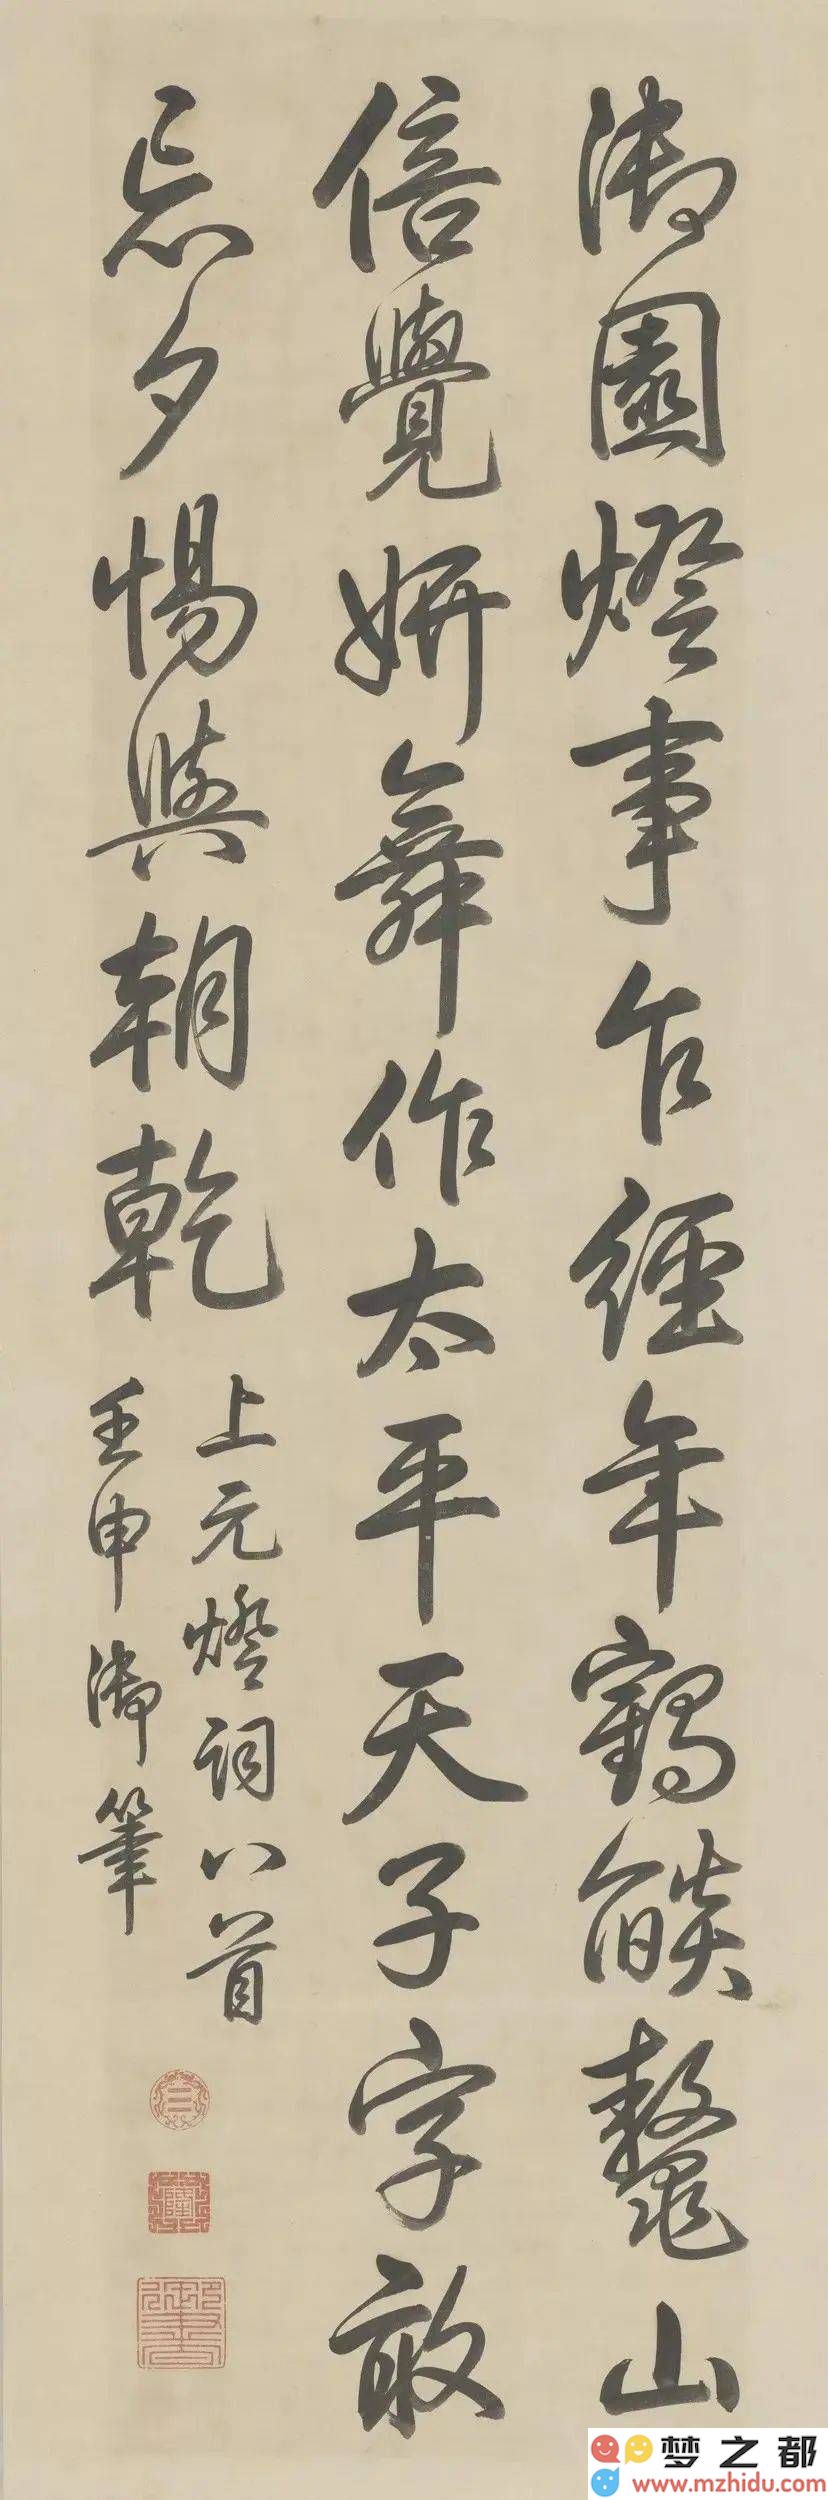 御園燈事乍經年鶴燄鼇山
倍覺妍舞作太平天子字敢
忘夕惕與朝乾
上元燈詞八首
壬申御筆
三
隆
御書
梦之都
www.mzhidu.com